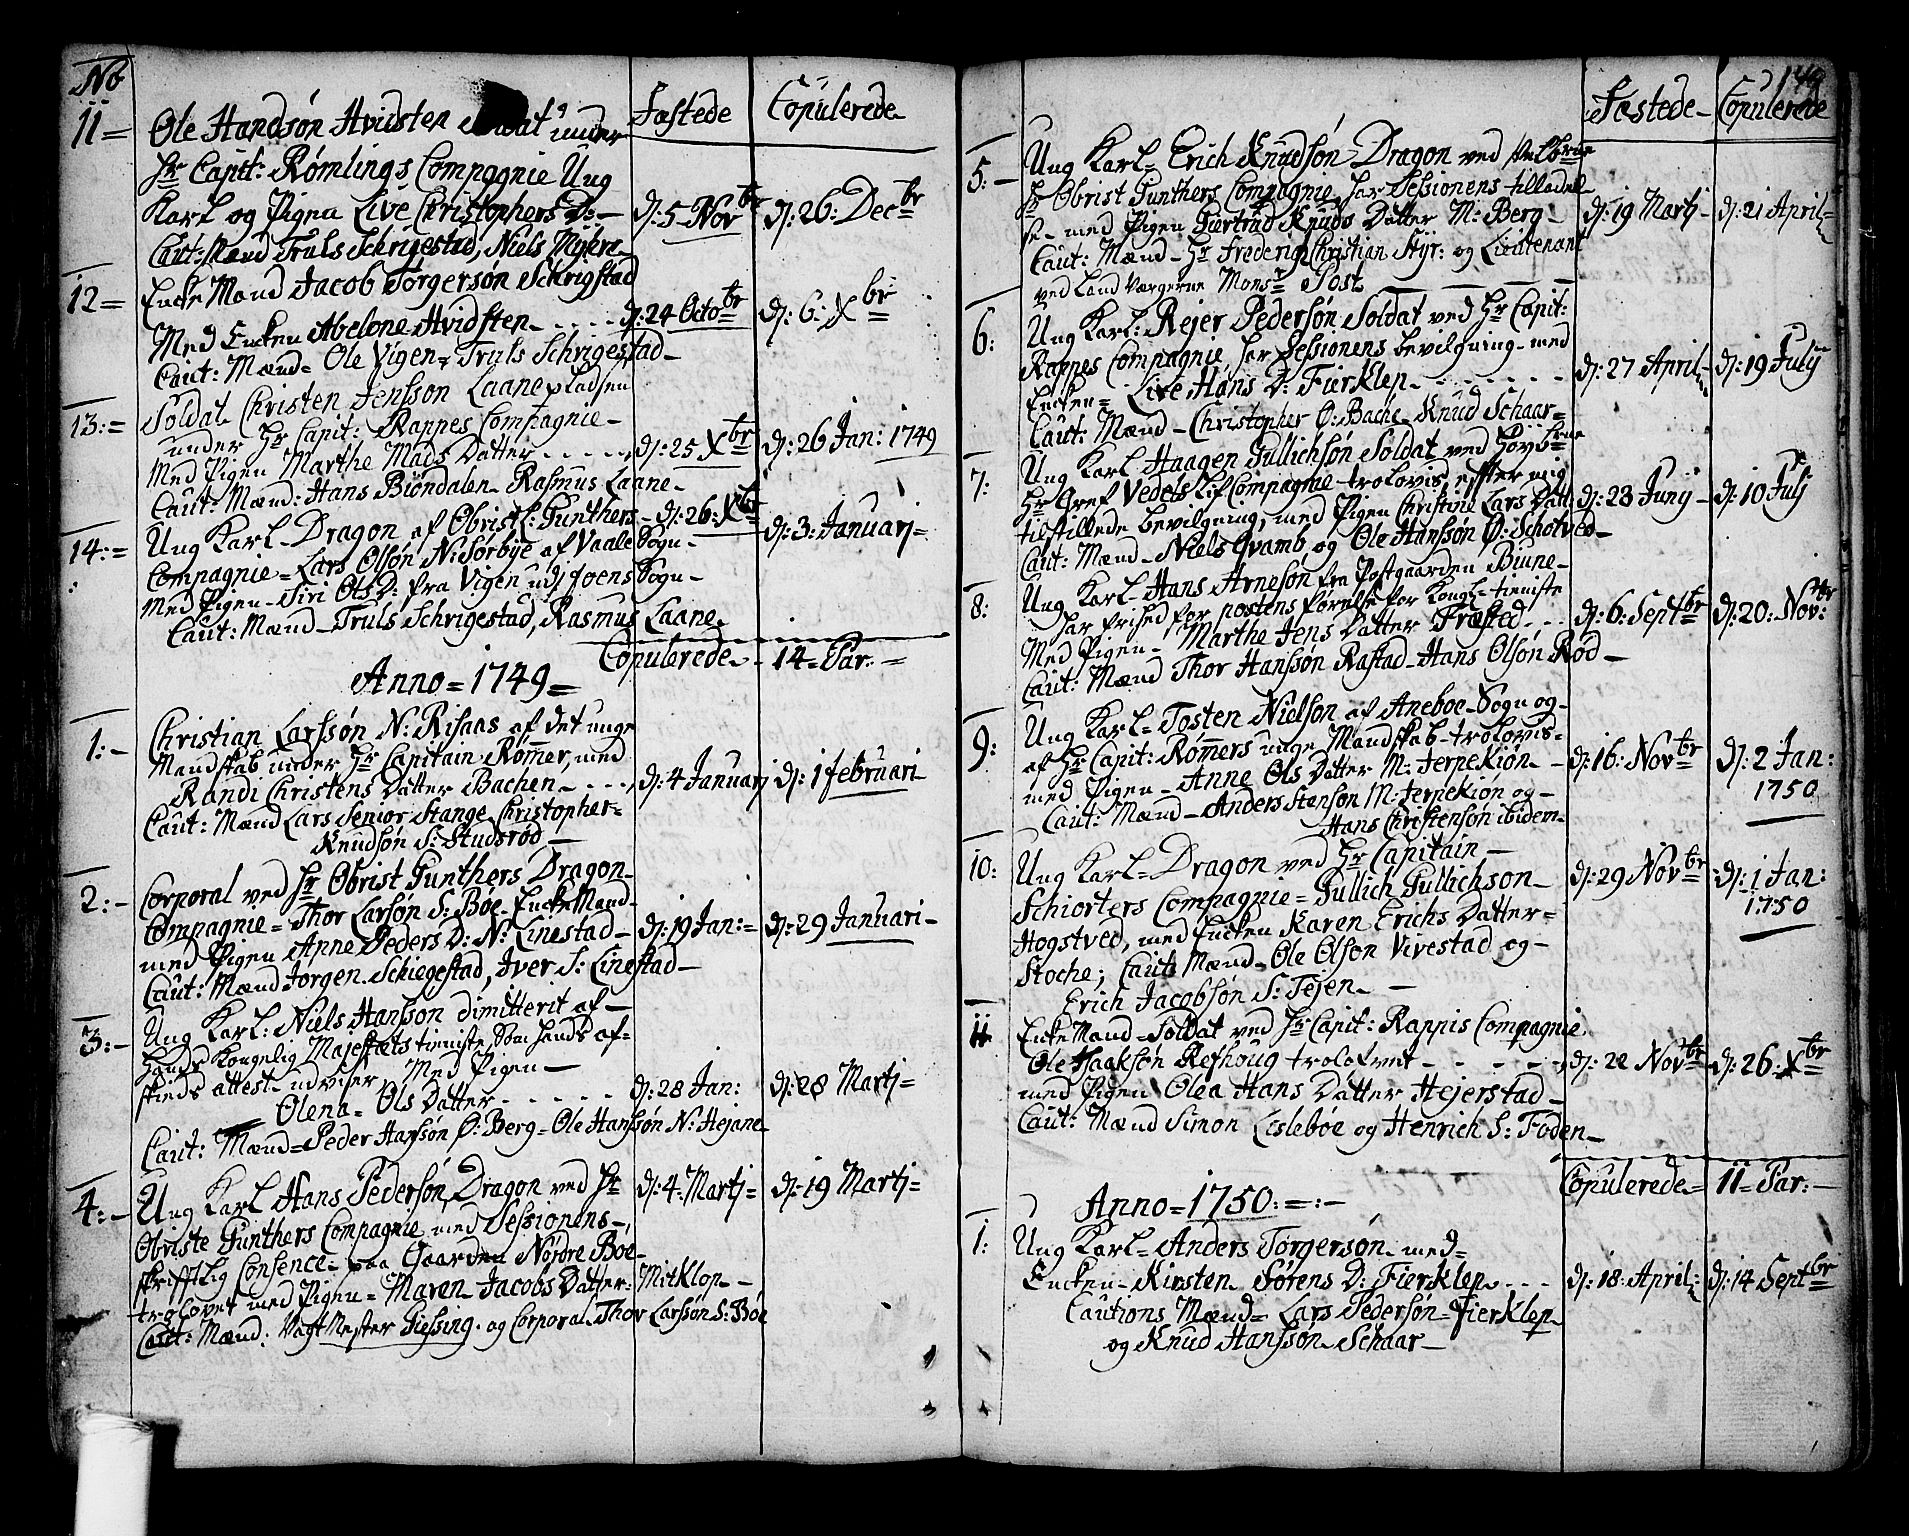 No
Fæstede Copulerede
11= Ole Handsøn Hvidsten Soldat under
Hr Capit: Rømlings Compagnie Ung
Karl og Pigen Live Christophers D:–
d: 5 Novbr d: 26: Decbr
Caut: Mænd Truls Schrigestad, Niels Myhre
12= Encke Mand Jacob Torgersøn Schrigstad
Med Encken Abelone Hvidsten - - - - d: 24 Octobr d: 6: Xbr
Caut: Mænd= Ole Vigen= Truls Schrigestad–
13:= Soldat Christen Jensson Laane pladsen
under Hr Capit: Rappes Compagnie–
Med Pigen Marthe Mads Datter - - - - d: 25 Xbr d: 26 Jan: 1749
Caut: Mænd: Hans Biøndalen– Rasmus Laane–
14:= Ung Karl– Dragon af Obristl: Gunthers– d: 26: Xbr d: 3: Januarj=
Compagnie= Lars Olsøn N: Sørbye af Vaale Sogn–
Med Pigen– Siri Ols D: fra Vigen udj Joens Sogn–
Caut: Mænd– Truls Schrigestad, Rasmus Laane.
Copulerede– 14= Par.=
Anno=1749=
1:– Christian Larssøn N: Risaas af det unge
Mandskab under Hr Capitain Rømer, med
Randi Christens Datter Bachen - - - - d: 4 Januarj d: 1 februari
Caut: Mænd Lars Senior Stange Christopher=
Knudsøn S: Studsrød–
2:– Corporal ved Hr Obrist Gunthers Dragon
Compagnie= Thor Larsøn S: Bøe. Encke Mand–
med Pigen Anne Peders D: N: Linestad– d: 19 Jan:= d: 29 Januari–
Caut: Mænd Jorgen Schiegestad, Iver S: Linestad–
3:– Ung Karl: Niels Hansson dimitterit af–
Hands Kongelig Majestæts tieniste, Som Hands af=
skieds attest udviser Med Pigen–
Olena– Ols Datter - - - - - d: 28 Jan: d: 28 Martj=
Caut: Mænd= Peder Hanssøn Ø: Berg– Ole Hanssøn N: Hejane
4:– Ung Karl Hans Pedersøn, Dragon ved Hr d: 4: Martj= d: 19 Martj=
Obriste Gunthers Compagnie med Sessionens–
skrifftlig Consence– paa Gaarden Nørdre Bøe–
trolovet med Pigen– Maren Jacobs Datter– Mitklop–
Caut: Mænd: Vagt Mester Giessing. og Corporal Thor Larssøn S: Bøe
149
Fæstede– Copulerede
5:– Ung Karl– Erich Knudsøn– Dragon ved Velb:rne
Hr Obrist Gunthers Compagnie har Sessionens tilladel
se– med Pigen Giertrud Knuds Datter M: Berg– d: 19 Martj– d: 21 April=
Caut: Mænd– Hr Frederich Christian Styr: og Lieutenant
ved Land Værgerne Monsr Post
6: Ung Karl: Rejer Pedersøn Soldat ved Hr Capit:
Rappes Compagnie har Sessionens bevilgning– med
Encken= Live Hans D: Fierklep - - - - - d: 27 April– d: 19 July
Caut: Mænd– Christopher Ø: Bache– Knud Schaar–
7: Ung Karl Haagen Gullichsøn Soldat ved Høyb:rne
Hr Gref Vedels Lif Compagnie– trolovis, effter mig
tilstillede bevilgning, med Pigen Christine Lars Datt: d: 23 Junj– d: 10 Julj
Caut: Mænd– Niels Qvamb og Ole Hanssøn Ø: Schotved–
8: Ung Karl– Hans Arneson fra Postgaarden Biune–
har frihed for postens førelse for Kongl= tieniste
Med Pigen– Marthe Jens Datter Fræsted - - - d: 6: Septbr d: 20: Novbr:
Caut: Mænd Thor Hanssøn Rastad– Hans Olsøn Rød–
9: Ung Karl– Tosten Nielson af Aneboe– Sogn og–
af Hr Capit: Rømers unge Mandskab– trolovis–
med Pigen– Anne Ols Datter M: Jerpekiøn– d: 16: Novbr d: 2 Jan:
1750
Caut: Mænd– Anders Stenson M: Jerpekiøn og–
Hans Christensøn ibidem–
10: Ung Karl– Dragon ved Hr Capitain– d: 29 Novbr d: 1 Jan:
1750
Schiorters Compagnie= Gullich Gullichson–
Hogstved, med Encken Karen Erichs Datter=
Stoche; Caut: Mænd– Ole Olson Vivestad og–
Erich Jacobson S: Tejen–
11. Encke Mand– Soldat ved Hr Capit: Rappis Compagnie
Ole Isaaksøn Refhoug trolofvet - - - - - d: 22 Novbr d: 26: Xbr
med Pigen Olea Hans Datter Hejerstad–
Caut: Mænd Simon Leslebøe og Henrich S: Foden–
Copulerede= 11= Par:–
Anno=1750:=:–
1: Ung Karl– Anders Torgersøn– med=
Encken– Kirsten Sørens D: Fierklep - - - d: 18: April: d: 14 Septbr
Cautions Mænd– Lars Pedersøn– Fierklep–
og Knud Hanssøn– Schaar–